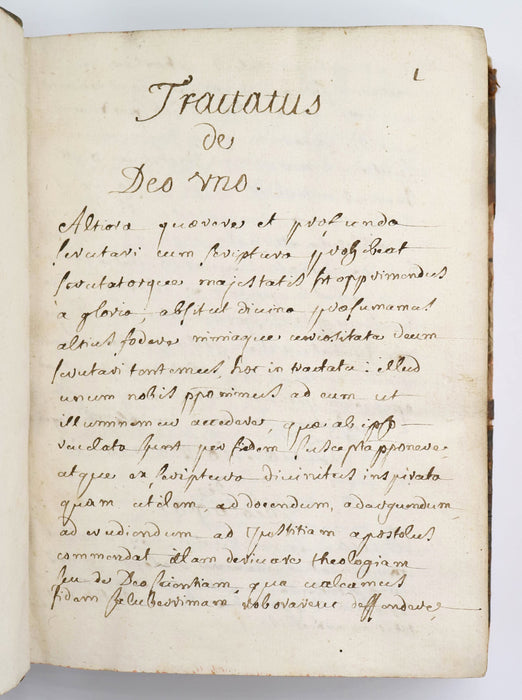 1
Tractatus
de
Deo uno.
Altiora quærere et profunda
scrutari cum scriptura prohibeat
scrutatorque majestatis sit opprimendus
à gloria, absit ut divina præsumamus
altius fodere nimiaque curiositate deum
scrutari tentemus, hoc in tractatu: illud
unum nobis pponimus ad eum ut
illuminemur accedere, quæ ab ipso
revelata sunt per fidem suscepta pponere
atque ex scriptura divinitus inspirata
quam utilem, ad docendum, adarguendum,
ad erudiendum ad justitiam apostolus
commendat, illam derivare theologiam
seu de Deo scientiam, qua valeamus
fidem saluberrimam roborare deffendere,